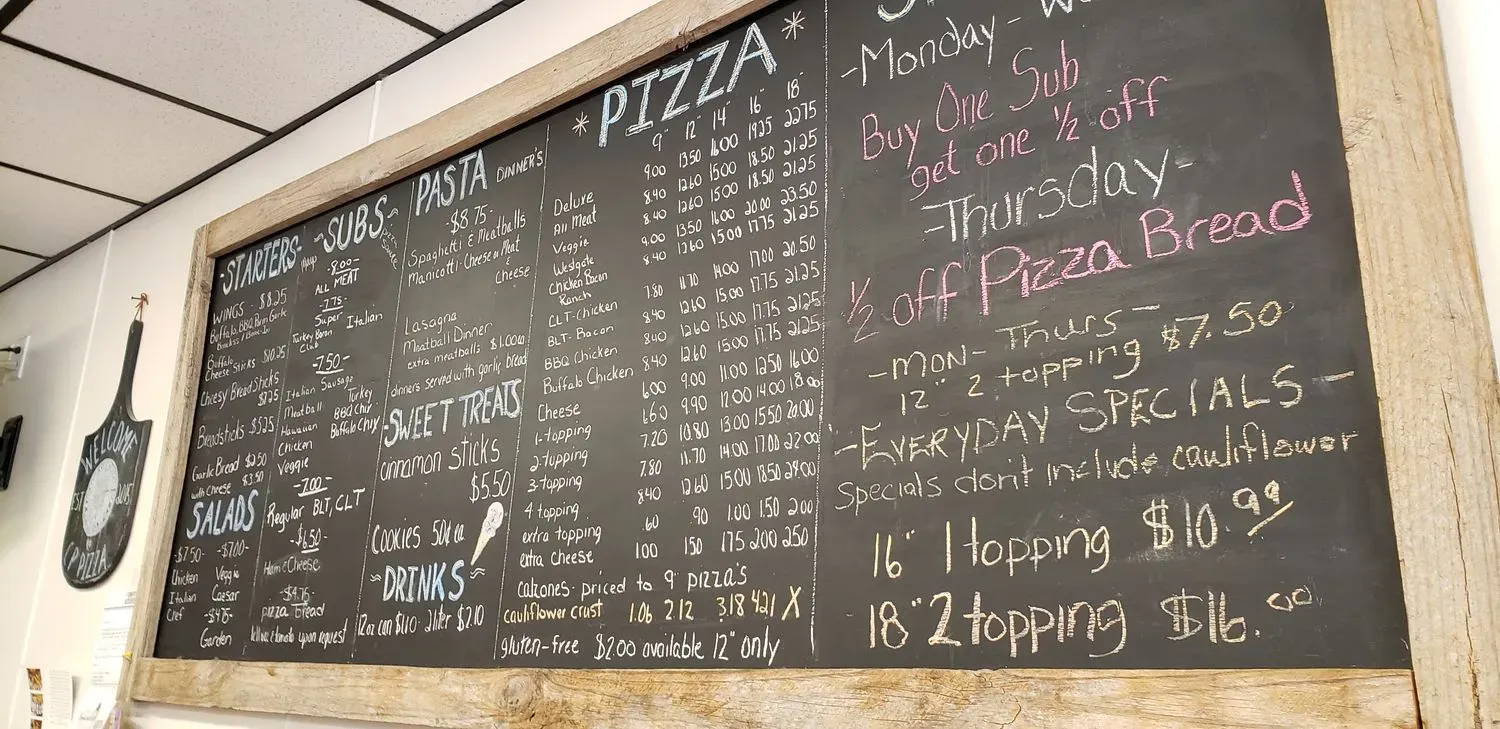 WELCOME
EST 2015
PIZZA
-STARTERS-
WINGS - $8.25
Buffalo, BBQ, Parm Garlic
Buffalo
Cheese Sticks $10.25
Cheesy Bread Sticks
$7.25
Breadsticks $5.25
Garlic Bread $2.50
with Cheese $3.50
SALADS
-$7.50- -$7.00-
Chicken Veggie
Italian Caesar
Chef -$4.75-
Garden
~SUBS~
-8.00-
ALL MEAT
-7.75-
Super Italian
Turkey Bacon
Club
-7.50-
Italian Sausage
Meatball Turkey
Hawaiian BBQ Chix
Chicken Buffalo Chix
Veggie
-7.00-
Regular BLT, CLT
-$6.50-
Ham & Cheese
-$4.75-
pizza bread
lettuce tomato upon request
PASTA DINNER'S
-$8.75-
Spaghetti & Meatballs
Manicotti- Cheese or Meat
& Cheese
Lasagna
Meatball Dinner
extra meatballs $1.00 ea
dinners served with garlic bread
-SWEET TREATS
cinnamon sticks
$5.50
Cookies 50¢ ea
~DRINKS~
12oz can $1.10 2 liter $2.10
* PIZZA *
9" 12" 14" 16" 18"
Deluxe 9.00 13.50 16.00 19.25 22.75
All Meat 8.40 12.60 15.00 18.50 21.25
Veggie 8.40 12.60 15.00 18.50 21.25
Westgate 9.00 13.50 16.00 20.00 23.50
Chicken Bacon
Ranch 8.40 12.60 15.00 17.75 21.25
CLT-Chicken 7.80 11.70 14.00 17.00 20.50
BLT-Bacon 8.40 12.60 15.00 17.75 21.25
BBQ Chicken 8.40 12.60 15.00 17.75 21.25
Buffalo Chicken 8.40 12.60 15.00 17.75 21.25
Cheese 6.00 9.00 11.00 12.50 16.00
1-topping 6.60 9.90 12.00 14.00 18.00
2-topping 7.20 10.80 13.00 15.50 20.00
3-topping 7.80 11.70 14.00 17.00 22.00
4 topping 8.40 12.60 15.00 18.50 24.00
extra topping .60 .90 1.00 1.50 2.00
extra cheese 1.00 1.50 1.75 2.00 2.50
calzones - priced to 9" pizza's
cauliflower crust 1.06 2.12 3.18 4.21 X
gluten-free $2.00 available 12" only
-Monday-
Buy One Sub
get one 1/2 off
-Thursday-
1/2 off Pizza Bread
-MON- Thurs-
12" 2 topping $7.50
-EVERYDAY SPECIALS-
Specials don't include cauliflower
16" 1 topping $10.99
18" 2 topping $16.00